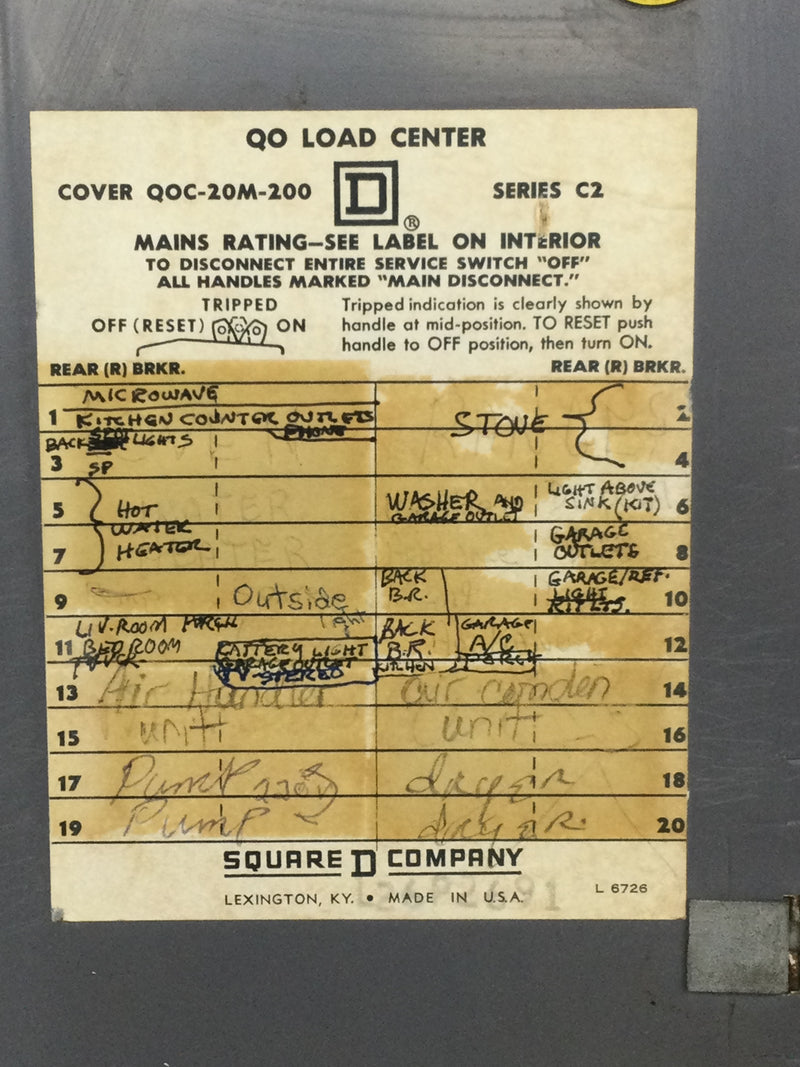 QO LOAD CENTER
COVER QOC-20M-200 D ® SERIES C2
MAINS RATING—SEE LABEL ON INTERIOR
TO DISCONNECT ENTIRE SERVICE SWITCH "OFF"
ALL HANDLES MARKED "MAIN DISCONNECT."
TRIPPED
OFF (RESET) ON
Tripped indication is clearly shown by
handle at mid-position. TO RESET push
handle to OFF position, then turn ON.
REAR (R) BRKR. REAR (R) BRKR.
MICROWAVE
1 KITCHEN COUNTER OUTLETS STOVE 2
PHONE
BACK LIGHTS
3 SP 4
5 HOT WASHER AND LIGHT ABOVE 6
GARAGE OUTLET SINK (KIT)
WATER
7 HEATER GARAGE 8
OUTLETS
9 Outside BACK GARAGE/REF. 10
light B.R. LIGHT
KIT LTS.
LIV. ROOM PORCH
11 BEDROOM BATTERY LIGHT BACK GARAGE 12
GARAGE OUTLET B.R. A/C
TV-STEREO KITCHEN PORCH
13 Air Handler air conden 14
15 unit unit 16
17 Pump 220V dryer 18
19 Pump dryer 20
SQUARE D COMPANY
LEXINGTON, KY. • MADE IN U.S.A. L 6726